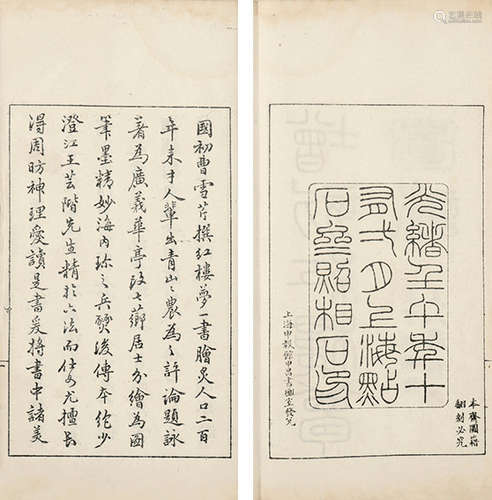 本齋圖籍
翻刻必究
光緒壬午季十
有弍月上海點
石齋照相石印
上海申報館申昌書畫室發兌
國初曹雪芹撰紅樓夢一書膾炙人口二百
年来才人輩出青山山農為之評論題詠
著為廣義華亭改七薌居士分繪為圖
筆墨精妙海內珍之兵燹後傳本絶少
澄江王芸階先生精於六法而仕女尤擅長
得周昉神理愛讀是書爰將書中諸美